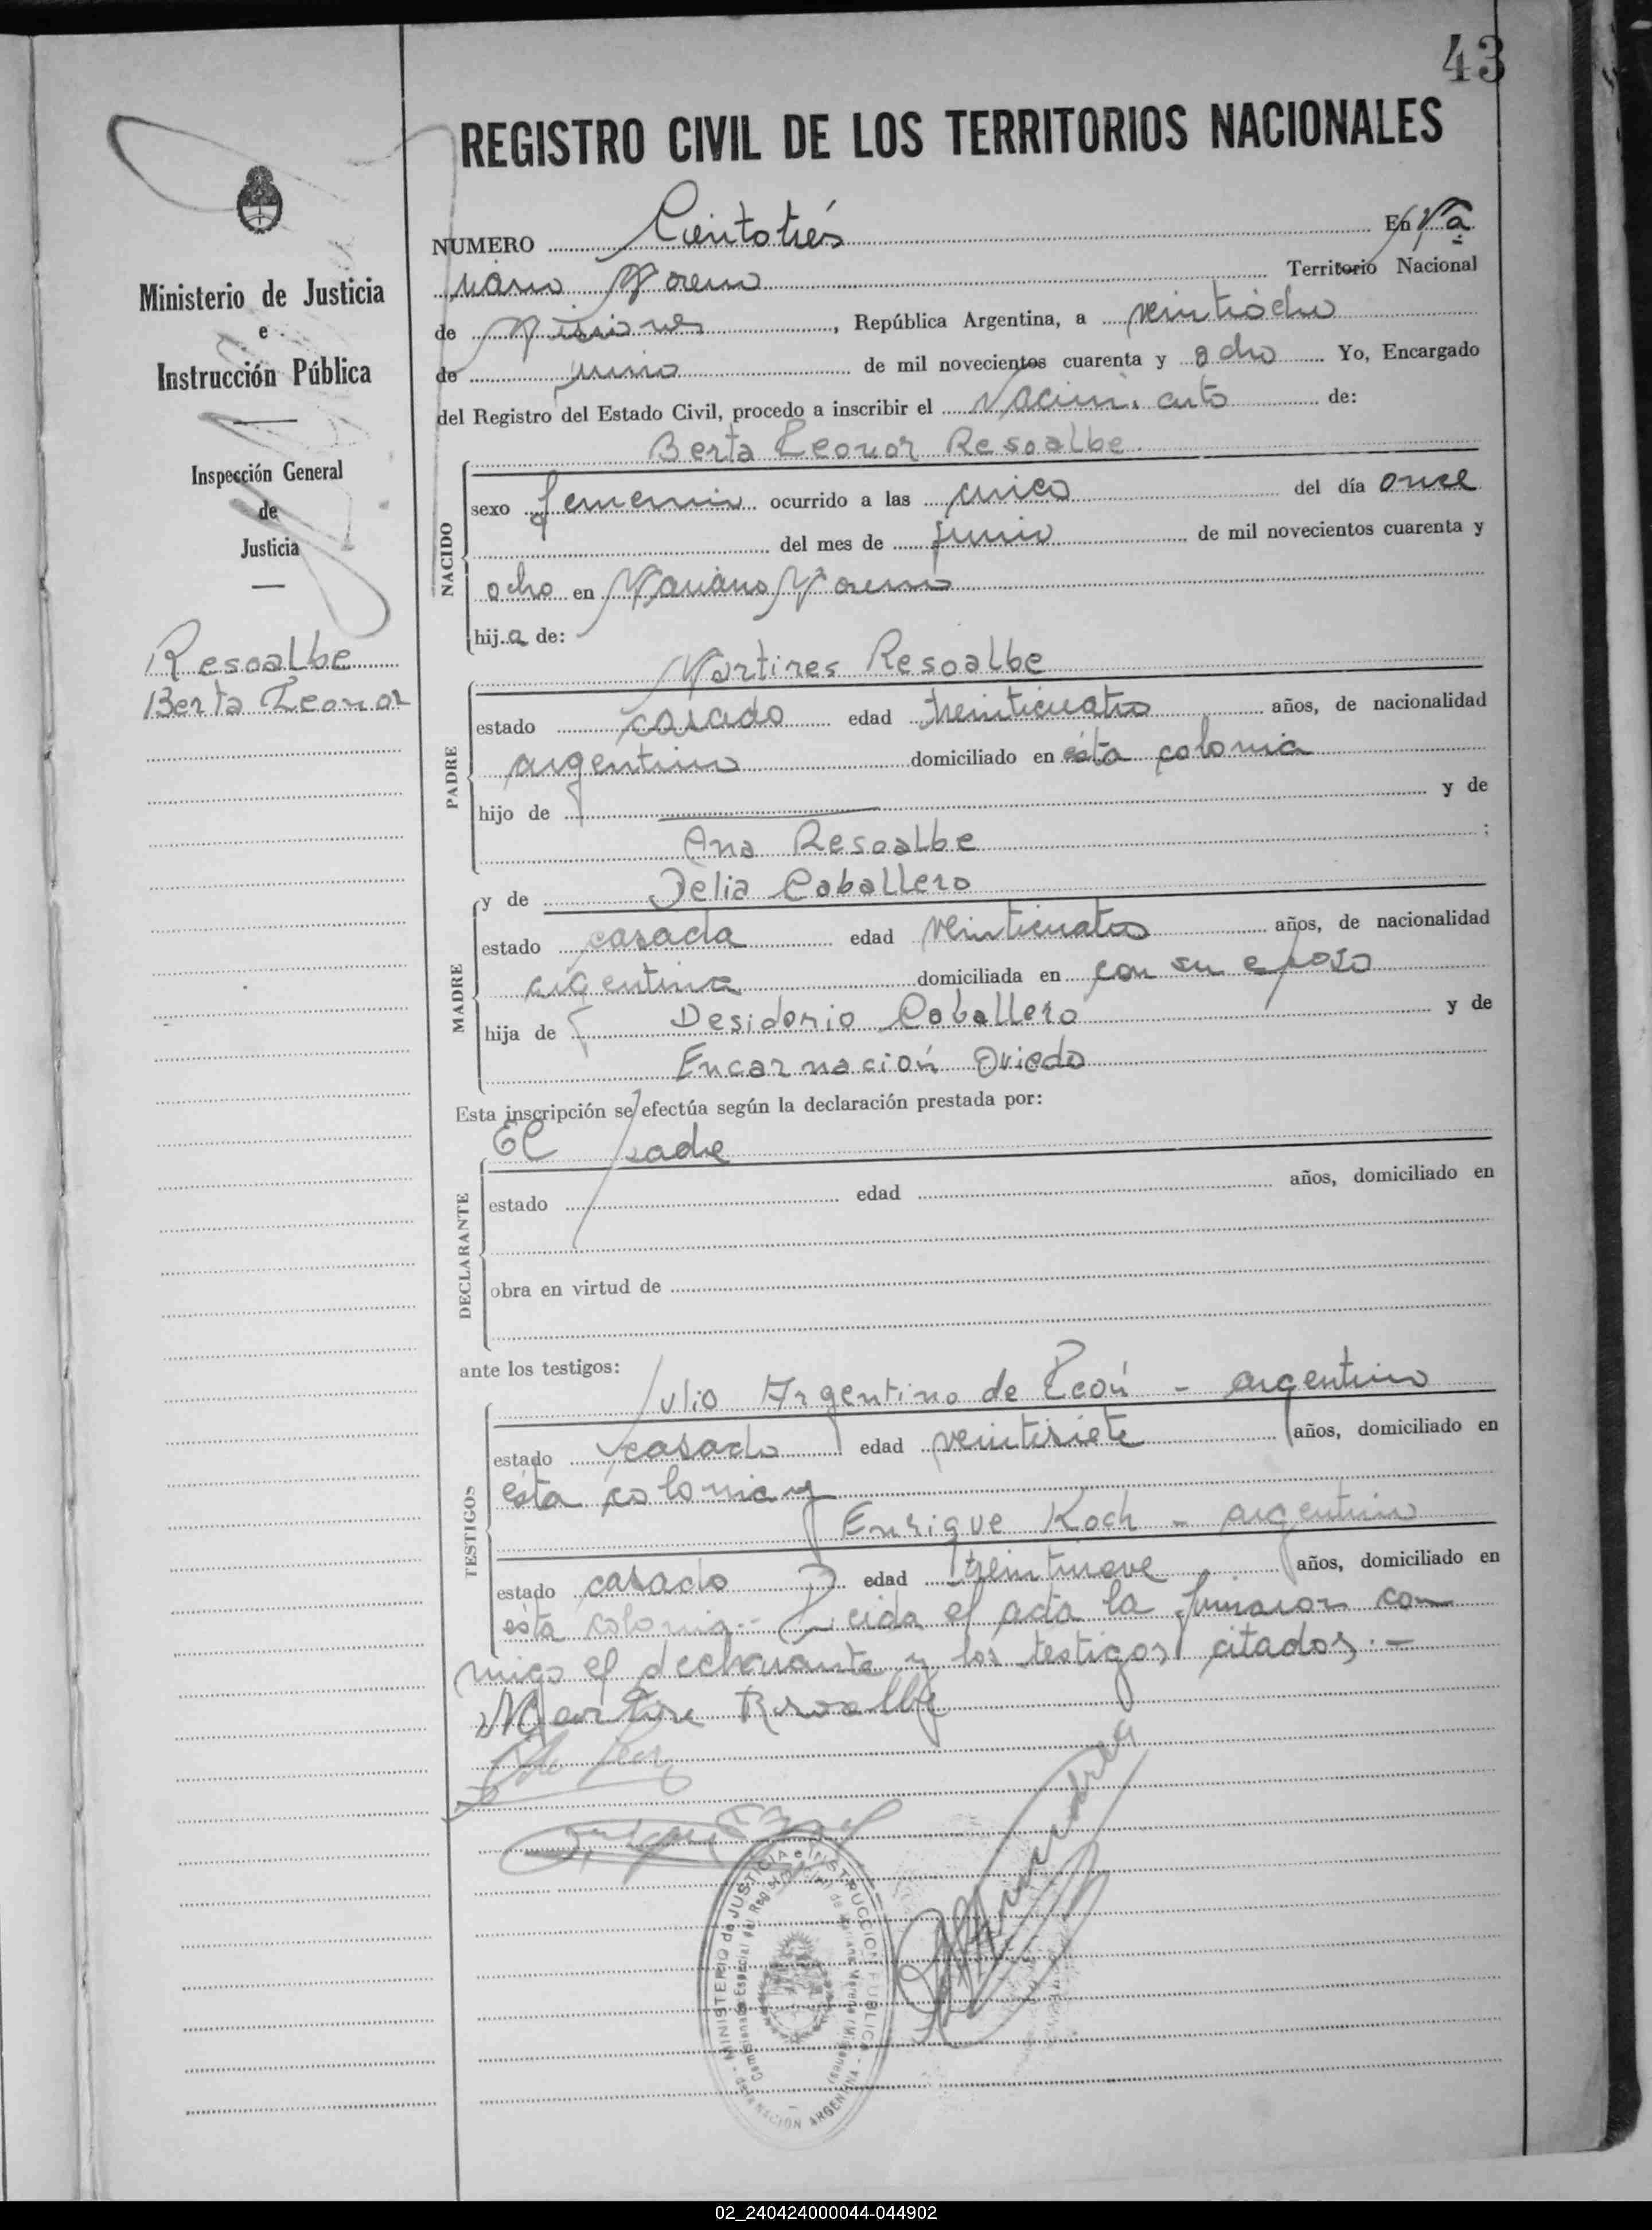 43
REGISTRO CIVIL DE LOS TERRITORIOS NACIONALES
Ministerio de Justicia
e
Instrucción Pública
Inspección General
de
Justicia
Resoalbe
Berta Leonor
NUMERO Cientotrés En Ma
riano Moreno Territorio Nacional
de Misiones, República Argentina, a veintiócho
de junio de mil novecientos cuarenta y ocho Yo, Encargado
del Registro del Estado Civil, procedo a inscribir el Nacimiento de:
Berta Leonor Resoalbe
NACIDO
sexo femenino ocurrido a las cinco del día once
del mes de junio de mil novecientos cuarenta y
ocho en Mariano Moreno
hija de:
Martires Resoalbe
PADRE
estado casado edad treinticuatro años, de nacionalidad
argentino domiciliado en ésta colonia
hijo de y de
Ana Resoalbe ;
y de Delia Caballero
MADRE
estado casada edad veinticuatro años, de nacionalidad
argentina domiciliada en con su esposo
hija de Desiderio Caballero y de
Encarnación Oviedo
Esta inscripción se efectúa según la declaración prestada por:
El padre
DECLARANTE
estado edad años, domiciliado en
obra en virtud de
ante los testigos:
Julio Argentino de León - argentino
TESTIGOS
estado casado edad veintisiete años, domiciliado en
ésta colonia y
Enrique Koch - argentino
estado casado edad treintinueve años, domiciliado en
ésta colonia.- Leida el acta la firmaron con
migo el declarante y los testigos citados.-
MINISTERIO de JUSTICIA e INSTRUCCION PUBLICA
NACION ARGENTINA
02_240424000044-044902